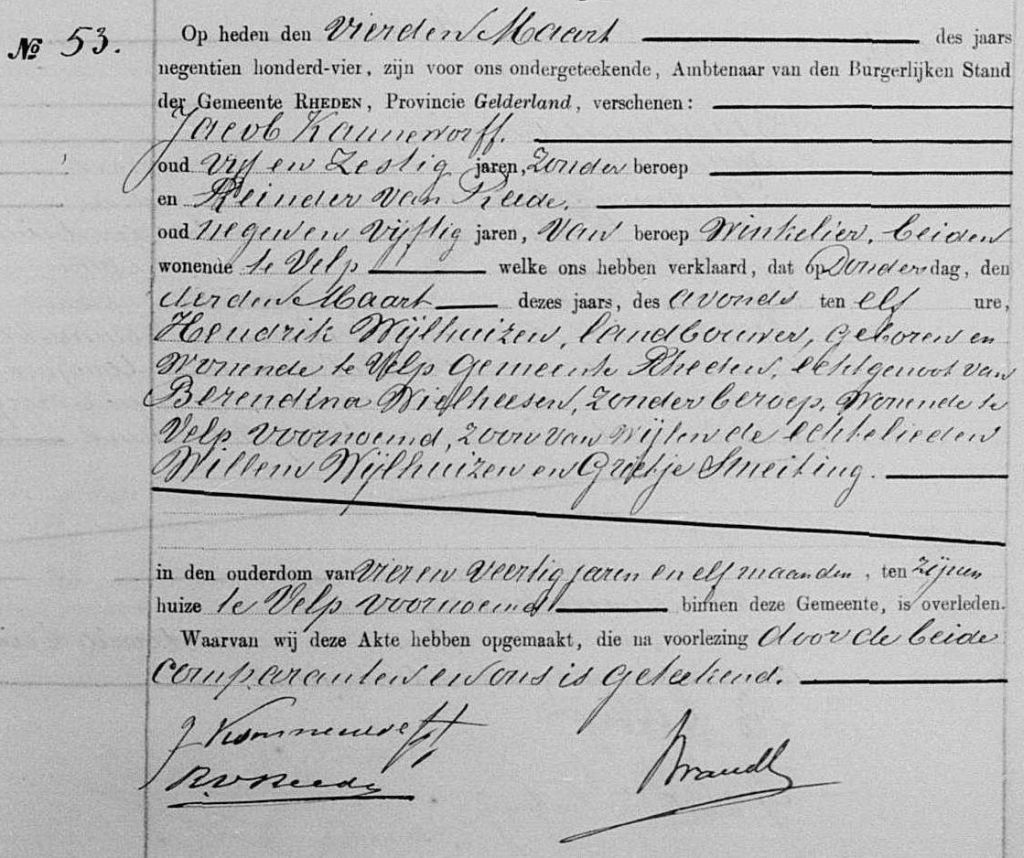 № 53. Op heden den vierden Maart des jaars
negentien honderd-vier, zijn voor ons ondergeteekende, Ambtenaar van den Burgerlijken Stand
der Gemeente RHEDEN, Provincie Gelderland, verschenen:
Jacob Kanneworff.
oud vijf en zestig jaren, zonder beroep
en Reinder van Reede.
oud negen en vijftig jaren, van beroep winkelier, beiden
wonende te Velp welke ons hebben verklaard, dat op Donderdag, den
derden Maart dezes jaars, des avonds ten elf ure,
Hendrik Wijlhuizen, landbouwer, geboren en
wonende te Velp gemeente Rheden, echtgenoot van
Berendina Wielheesen, zonder beroep, wonende te
Velp voornoemd, zoon van wijlen de echtelieden
Willem Wijlhuizen en Grietje Smeiting.
in den ouderdom van vier en veertig jaren en elf maanden, ten zijnen
huize te Velp voornoemd binnen deze Gemeente, is overleden.
Waarvan wij deze Akte hebben opgemaakt, die na voorlezing door de beide
comparanten en ons is geteekend.
J Kanneworff
R v Reede
Brandt